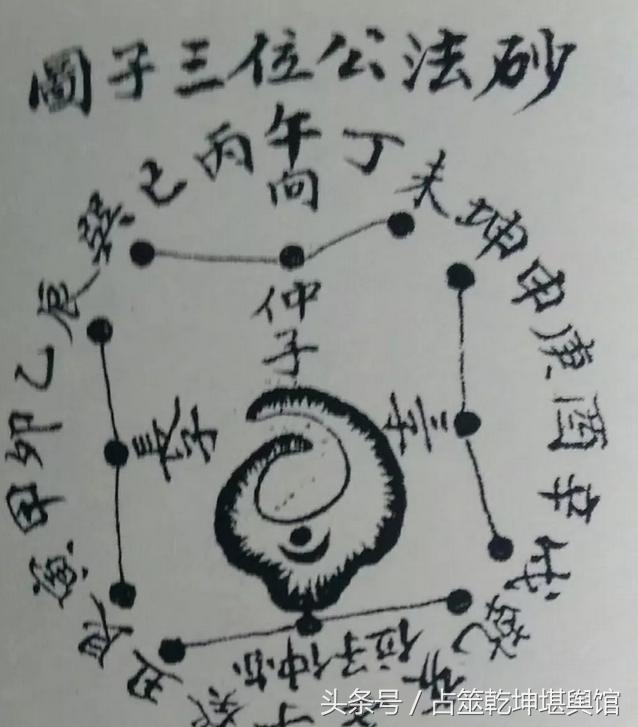 砂法公位三子圖
巽巳丙午向丁未坤申庚酉辛戌乾
丑艮寅甲卯乙辰
仲子
長子
三子
亦仲子位
头条号 / 占筮乾坤堪舆馆